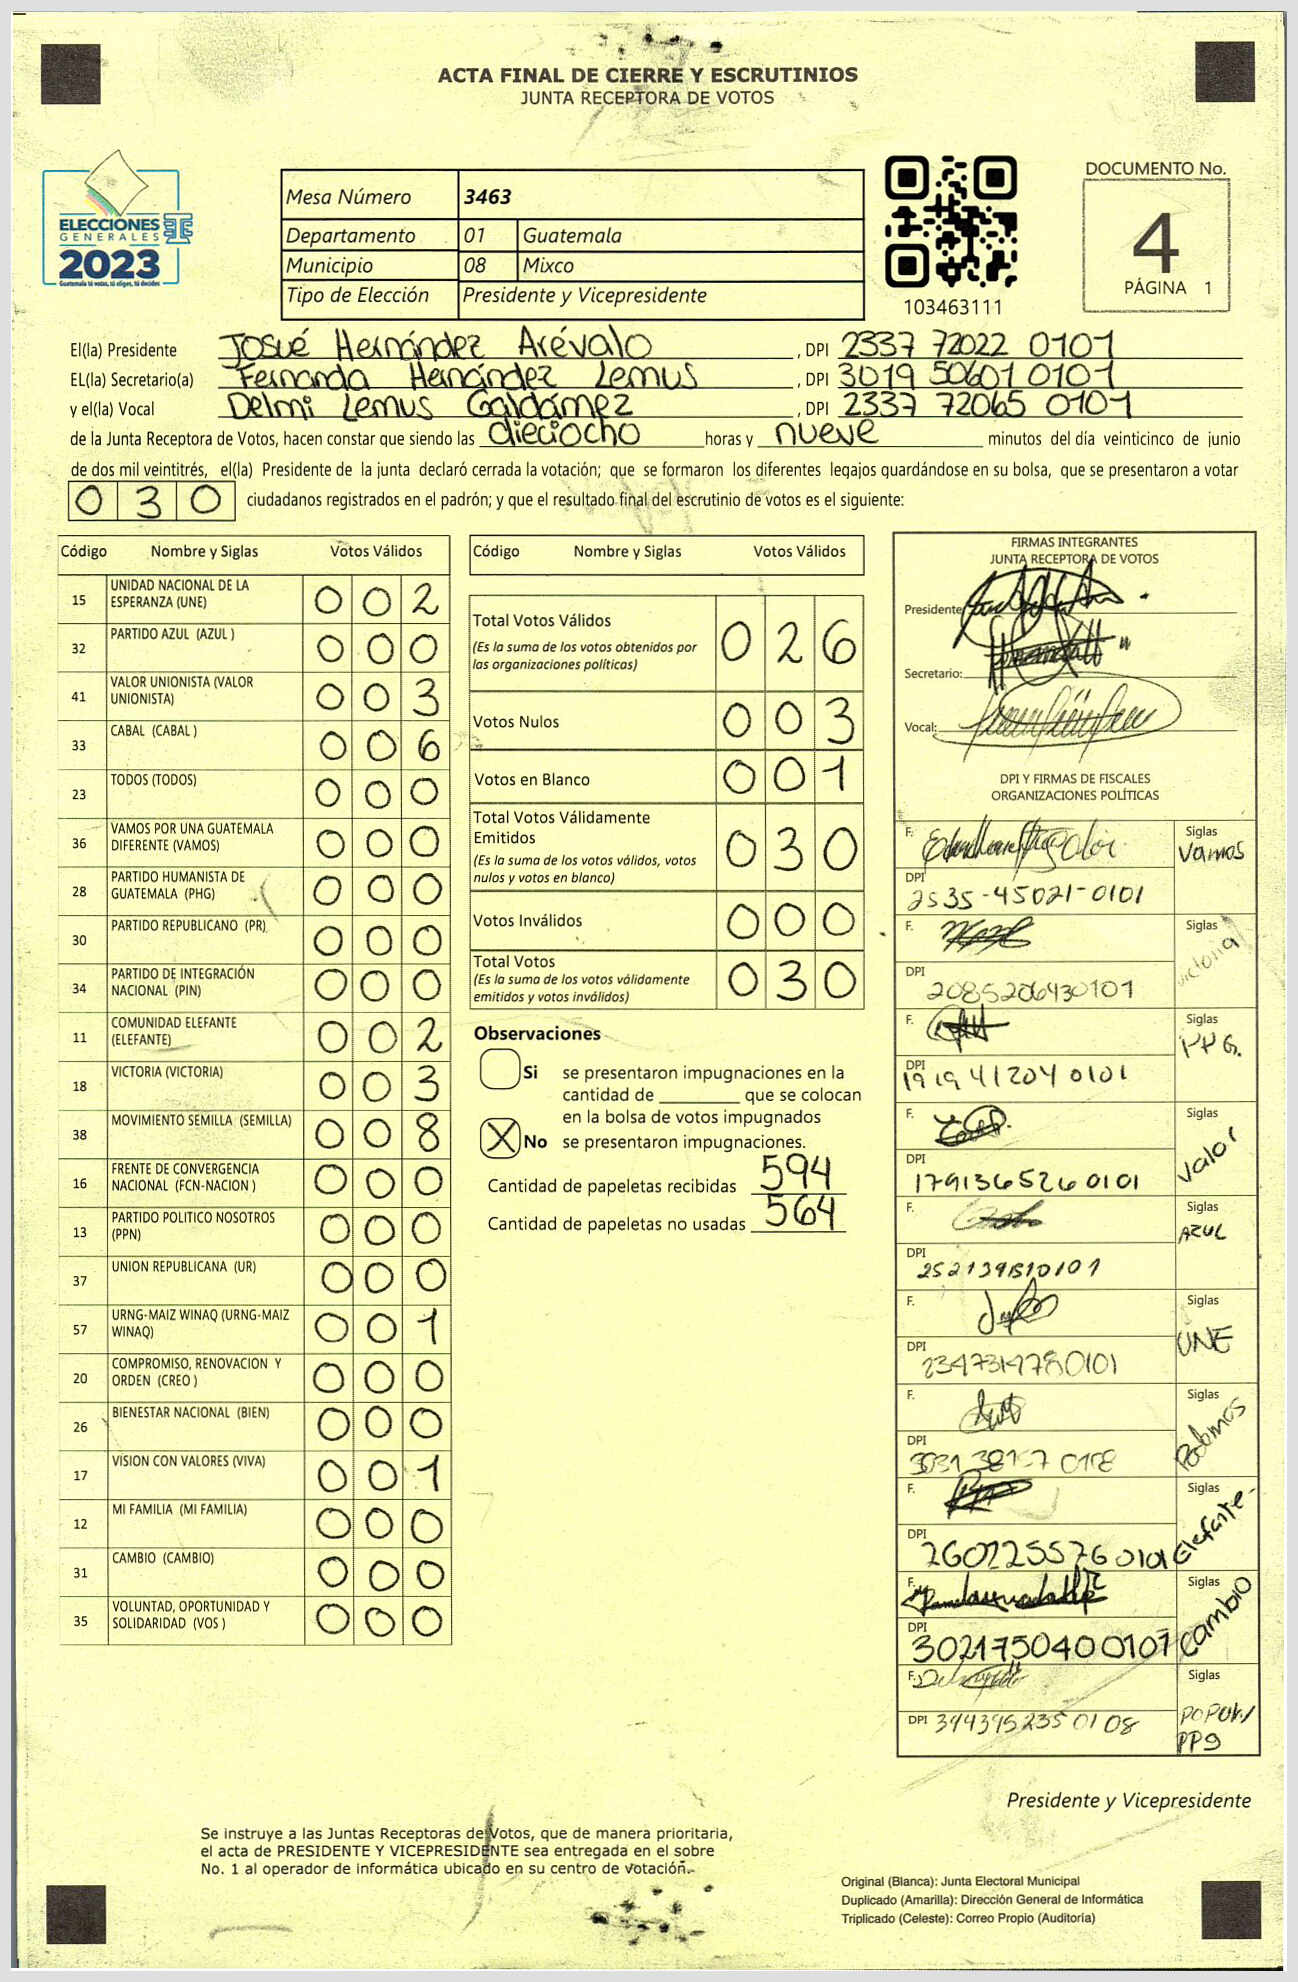 ACTA FINAL DE CIERRE Y ESCRUTINIOS
JUNTA RECEPTORA DE VOTOS
ELECCIONES
GENERALES
2023
Guatemala tú votas, tú eliges, tú decides
Mesa Número 3463
Departamento 01 Guatemala
Municipio 08 Mixco
Tipo de Elección Presidente y Vicepresidente
103463111
DOCUMENTO No.
4
PÁGINA 1
El(la) Presidente Josué Hernández Arévalo, DPI 2337 72022 0101
EL(la) Secretario(a) Fernanda Hernández Lemus, DPI 3019 50601 0101
y el(la) Vocal Delmi Lemus Galdámez, DPI 2337 72065 0101
de la Junta Receptora de Votos, hacen constar que siendo las dieciocho horas y nueve minutos del día veinticinco de junio
de dos mil veintitrés, el(la) Presidente de la junta declaró cerrada la votación; que se formaron los diferentes legajos guardándose en su bolsa, que se presentaron a votar
0 3 0 ciudadanos registrados en el padrón; y que el resultado final del escrutinio de votos es el siguiente:
Código Nombre y Siglas Votos Válidos
15 UNIDAD NACIONAL DE LA ESPERANZA (UNE) 0 0 2
32 PARTIDO AZUL (AZUL ) 0 0 0
41 VALOR UNIONISTA (VALOR UNIONISTA) 0 0 3
33 CABAL (CABAL ) 0 0 6
23 TODOS (TODOS) 0 0 0
36 VAMOS POR UNA GUATEMALA DIFERENTE (VAMOS) 0 0 0
28 PARTIDO HUMANISTA DE GUATEMALA (PHG) 0 0 0
30 PARTIDO REPUBLICANO (PR) 0 0 0
34 PARTIDO DE INTEGRACIÓN NACIONAL (PIN) 0 0 0
11 COMUNIDAD ELEFANTE (ELEFANTE) 0 0 2
18 VICTORIA (VICTORIA) 0 0 3
38 MOVIMIENTO SEMILLA (SEMILLA) 0 0 8
16 FRENTE DE CONVERGENCIA NACIONAL (FCN-NACION ) 0 0 0
13 PARTIDO POLITICO NOSOTROS (PPN) 0 0 0
37 UNION REPUBLICANA (UR) 0 0 0
57 URNG-MAIZ WINAQ (URNG-MAIZ WINAQ) 0 0 1
20 COMPROMISO, RENOVACION Y ORDEN (CREO ) 0 0 0
26 BIENESTAR NACIONAL (BIEN) 0 0 0
17 VISION CON VALORES (VIVA) 0 0 1
12 MI FAMILIA (MI FAMILIA) 0 0 0
31 CAMBIO (CAMBIO) 0 0 0
35 VOLUNTAD, OPORTUNIDAD Y SOLIDARIDAD (VOS ) 0 0 0
Código Nombre y Siglas Votos Válidos
Total Votos Válidos 0 2 6
(Es la suma de los votos obtenidos por
las organizaciones políticas)
Votos Nulos 0 0 3
Votos en Blanco 0 0 1
Total Votos Válidamente
Emitidos 0 3 0
(Es la suma de los votos válidos, votos
nulos y votos en blanco)
Votos Inválidos 0 0 0
Total Votos 0 3 0
(Es la suma de los votos válidamente
emitidos y votos inválidos)
Observaciones
Si se presentaron impugnaciones en la
cantidad de ________ que se colocan
en la bolsa de votos impugnados
X No se presentaron impugnaciones.
Cantidad de papeletas recibidas 594
Cantidad de papeletas no usadas 564
FIRMAS INTEGRANTES
JUNTA RECEPTORA DE VOTOS
Presidente
Secretario:
Vocal:
DPI Y FIRMAS DE FISCALES
ORGANIZACIONES POLÍTICAS
F. Siglas
Vamos
DPI 2535-45021-0101
F. Siglas
victoria
DPI 2085206430101
F. Siglas
PHG.
DPI 1919 41204 0101
F. Siglas
Valor
DPI 1791365260101
F. Siglas
AZUL
DPI
F. Siglas
UNE
DPI
F. Siglas
Podemos
DPI
F. Siglas
Elefante
DPI 260225576 0101
F. Siglas
Cambio
DPI 3021750400107
F. Siglas
DPI
Presidente y Vicepresidente
Se instruye a las Juntas Receptoras de Votos, que de manera prioritaria,
el acta de PRESIDENTE Y VICEPRESIDENTE sea entregada en el sobre
No. 1 al operador de informática ubicado en su centro de votación.
Original (Blanca): Junta Electoral Municipal
Duplicado (Amarilla): Dirección General de Informática
Triplicado (Celeste): Correo Propio (Auditoría)